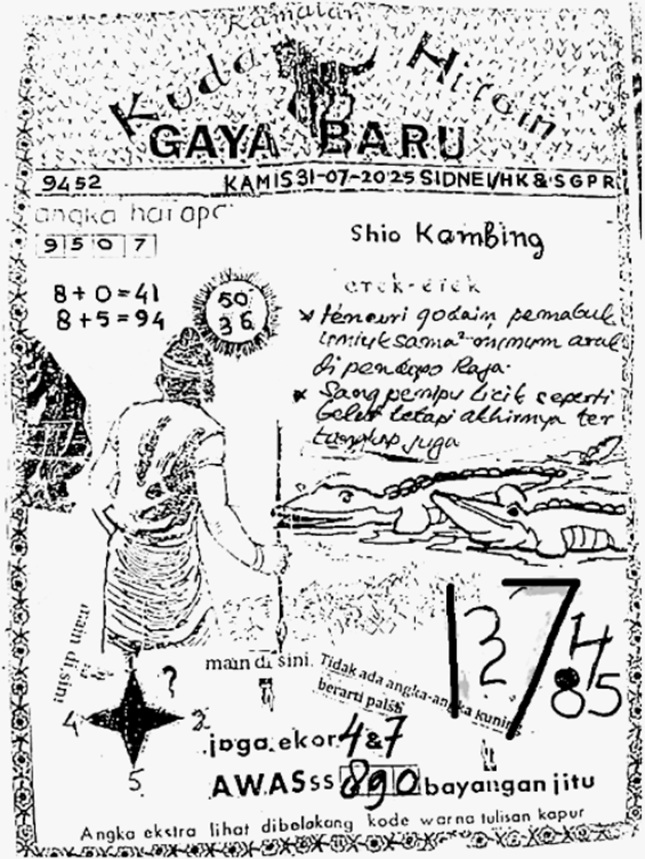 Ramalan
Kuda Hitam
GAYA BARU
9452 KAMIS 31-07-2025 SIDNEI/HK & SGPR
angka harapa
9 5 0 7
Shio Kambing
8+0=41
8+5=94
50
36
erek-erek
pemabuk
di pendopo Raja.
Sang penipu licik seperti
tetapi akhirnya ter
tangkap juga
1 7
3 2
4
85
main di sini
?
4
2
5
main di sini.
Tidak ada angka-angka kuning
berarti palsu
jaga ekor 4&7
AWASss 890 bayangan jitu
Angka ekstra lihat dibelakang kode warna tulisan kapur